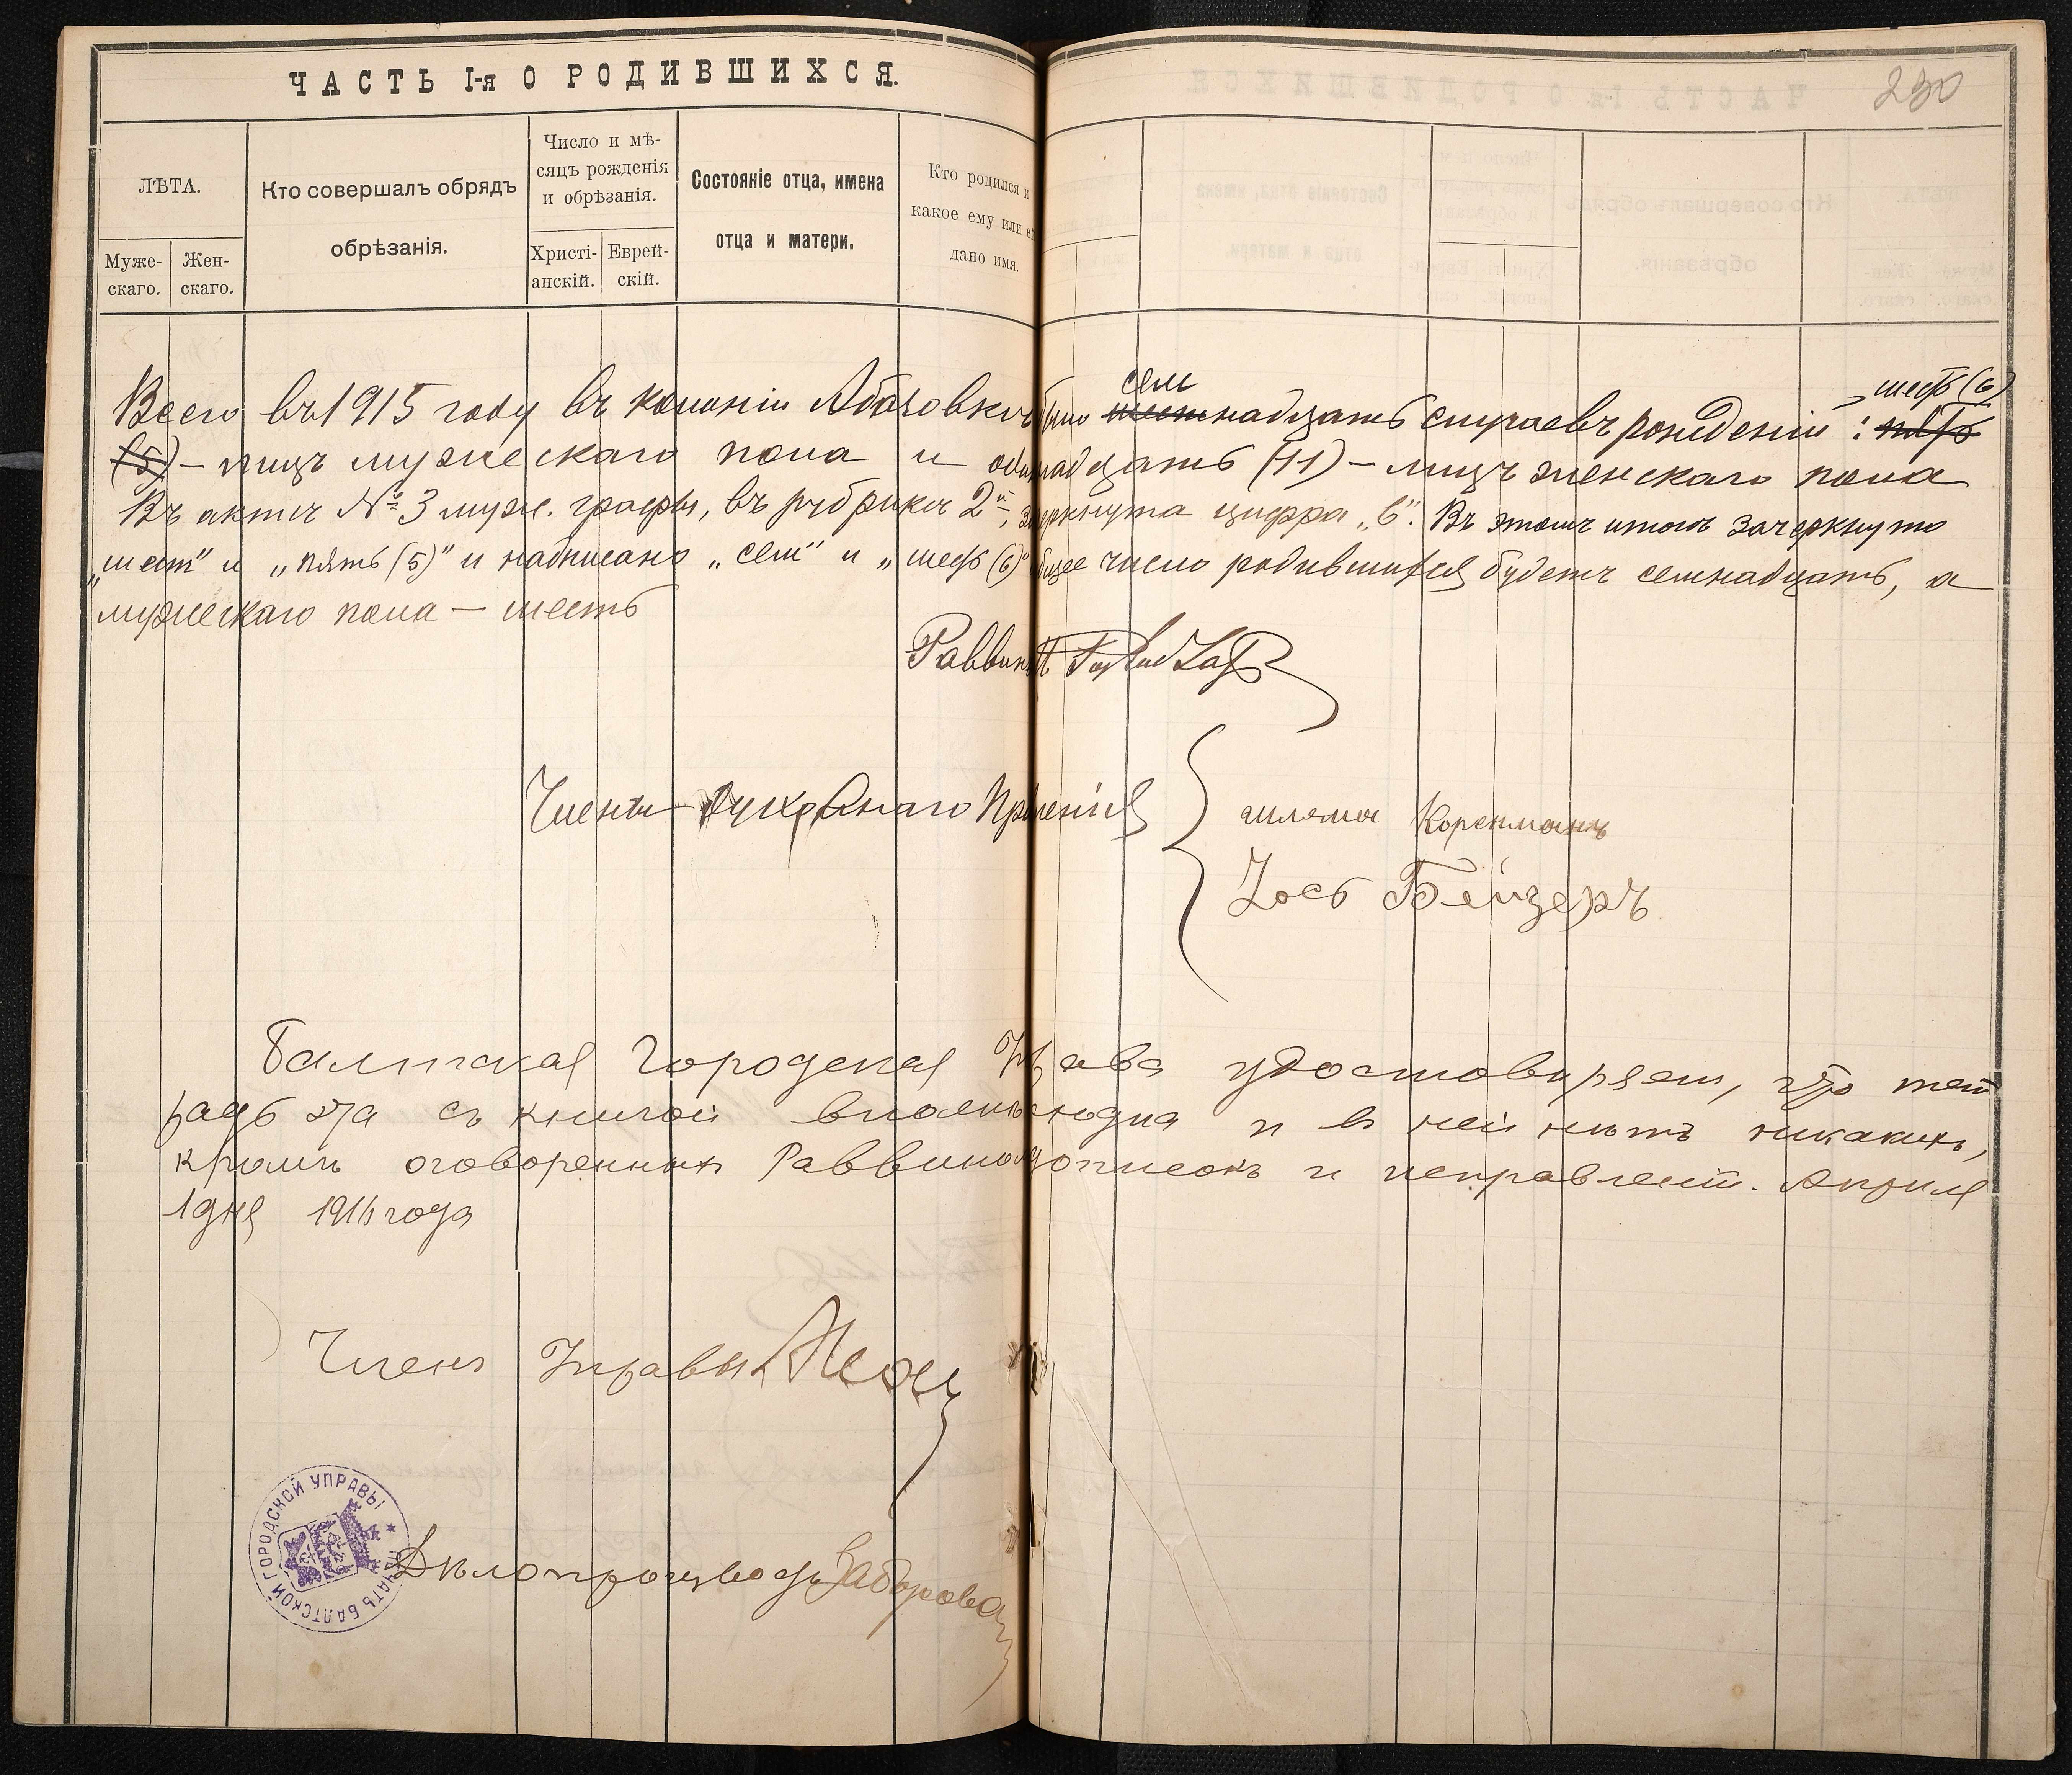 ЧАСТЬ I-я О РОДИВШИХСЯ.
230
ЛѢТА.
Муже-
скаго.
Жен-
скаго.
Кто совершалъ обрядъ
обрѣзанія.
Число и мѣ-
сяцъ рожденія
и обрѣзанія.
Христі-
анскій.
Еврей-
скій.
Состояніе отца, имена
отца и матери.
Кто родился и
какое ему или ей
дано имя.
сем
шесть (6)
Всего въ 1915 году въ колоніи Абазовкѣ было шестнадцать случаевъ рожденій: пять
(5) — лицъ мужескаго пола и одинадцать (11) — лицъ женскаго пола
Въ актѣ № 3 муж. графы, въ рубрикѣ 2й, зачеркнута цифра „6". Въ этомъ итогѣ зачеркнуто
„шест" и „пять (5)" и надписано „сем" и „шесть (6)" общее число родившихся будетъ семнадцать, а
мужескаго пола — шесть
Раввинъ
Члены Духовнаго Правленія
шлема Коренманъ
Іось Бейзеръ
Балтская Городская Управа удостовѣряетъ, что тет
радь эта съ книгой вполнѣ сходна и въ ней нѣтъ никакихъ,
кромѣ оговоренныхъ Раввиномъ описокъ и исправленій. Апрѣля
1 дня 1916 года
Членъ Управы
Дѣлопроизводъ
ПЕЧАТЬ БАЛТСКОЙ ГОРОДСКОЙ УПРАВЫ